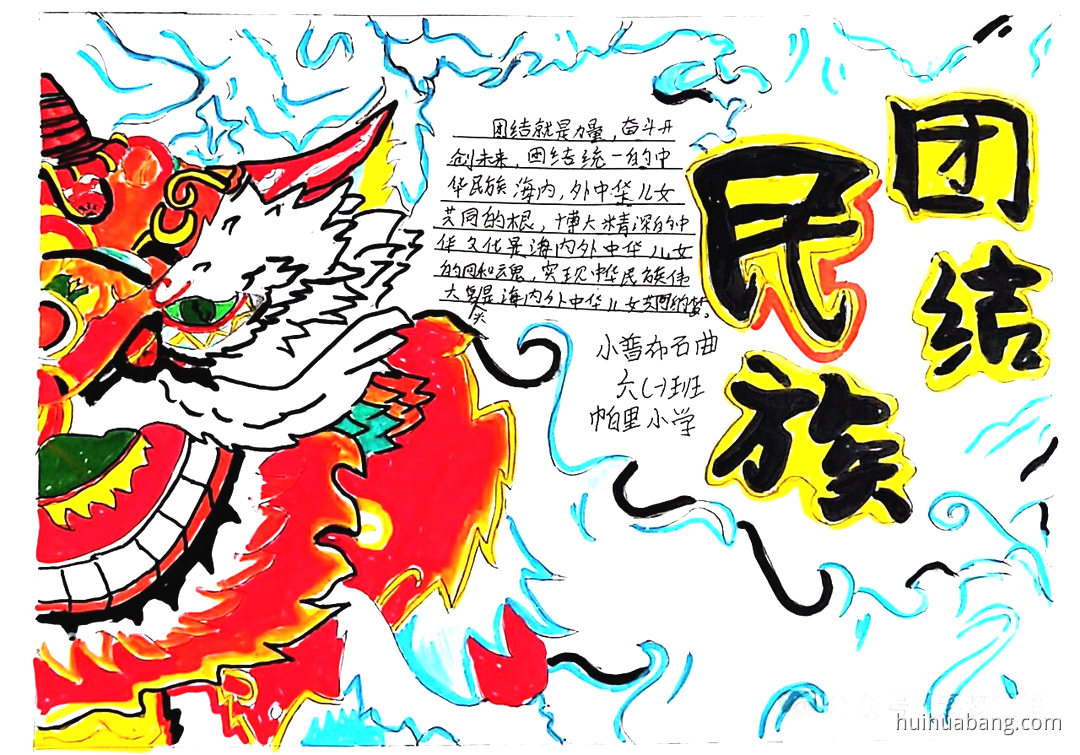 民族
团结
团结就是力量，奋斗开
创未来，团结统一的中
华民族海内，外中华儿女
共同的根，博大精深的中
华文化是海内外中华儿女
的共和魂，实现中华民族伟
大 是海内外中华儿女共同的梦。
小普布石曲
六(一)班
帕里小学
huihuabang.com